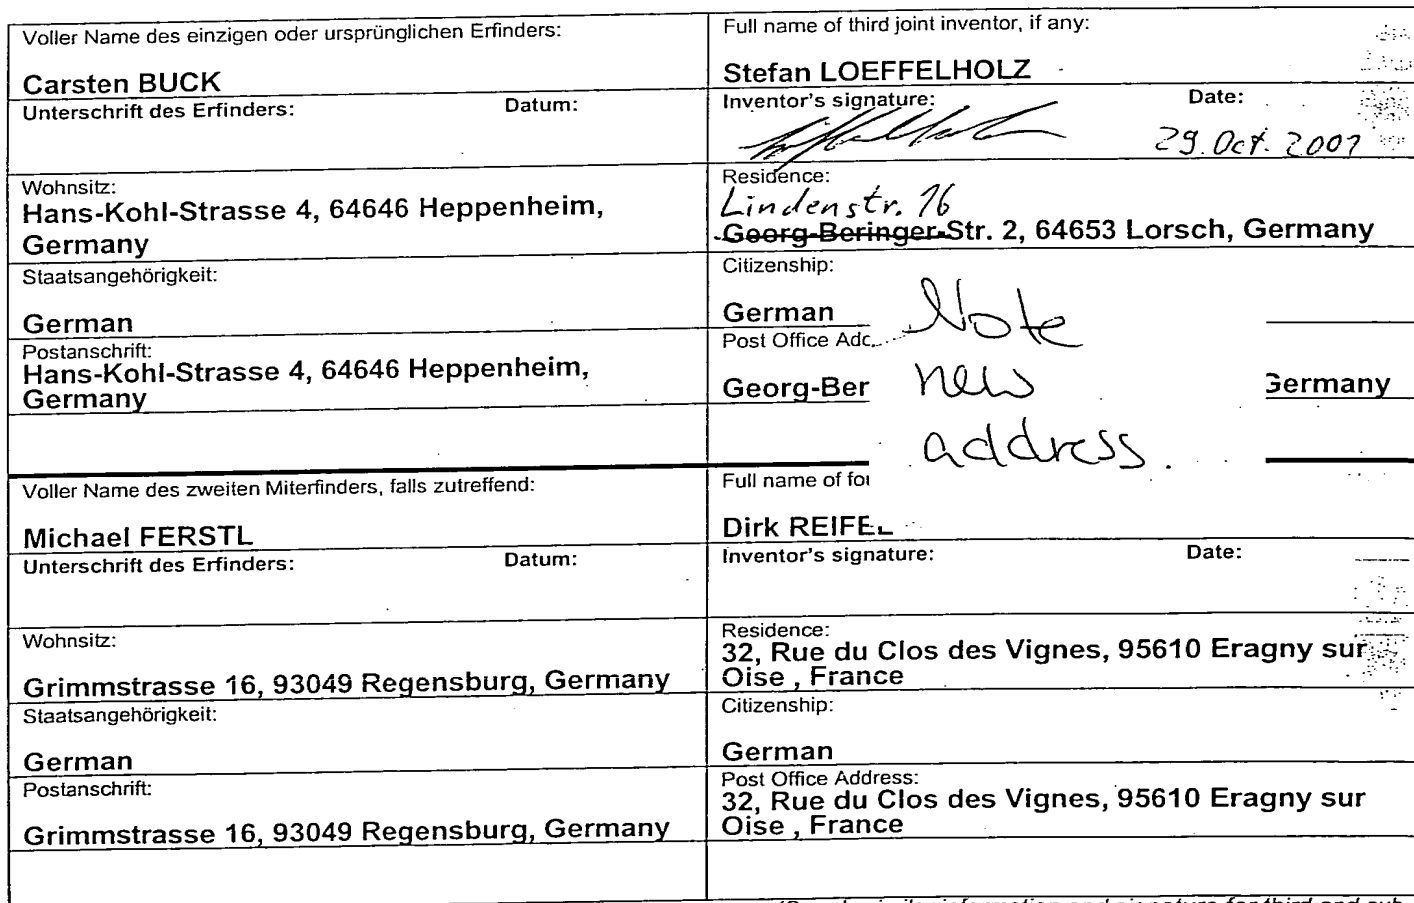 Voller Name des einzigen oder ursprünglichen Erfinders:
Carsten BUCK
Unterschrift des Erfinders: Datum:
Wohnsitz:
Hans-Kohl-Strasse 4, 64646 Heppenheim,
Germany
Staatsangehörigkeit:
German
Postanschrift:
Hans-Kohl-Strasse 4, 64646 Heppenheim,
Germany
Voller Name des zweiten Miterfinders, falls zutreffend:
Michael FERSTL
Unterschrift des Erfinders: Datum:
Wohnsitz:
Grimmstrasse 16, 93049 Regensburg, Germany
Staatsangehörigkeit:
German
Postanschrift:
Grimmstrasse 16, 93049 Regensburg, Germany
Full name of third joint inventor, if any:
Stefan LOEFFELHOLZ
Inventor's signature: Date:
29. Oct. 2001
Residence:
Lindenstr. 16
Georg-Beringer-Str. 2, 64653 Lorsch, Germany
Citizenship:
German
Post Office
Georg-Ber Germany
Note
new
address.
Full name of
Dirk REIFEL
Inventor's signature: Date:
Residence:
32, Rue du Clos des Vignes, 95610 Eragny sur
Oise , France
Citizenship:
German
Post Office Address:
32, Rue du Clos des Vignes, 95610 Eragny sur
Oise , France